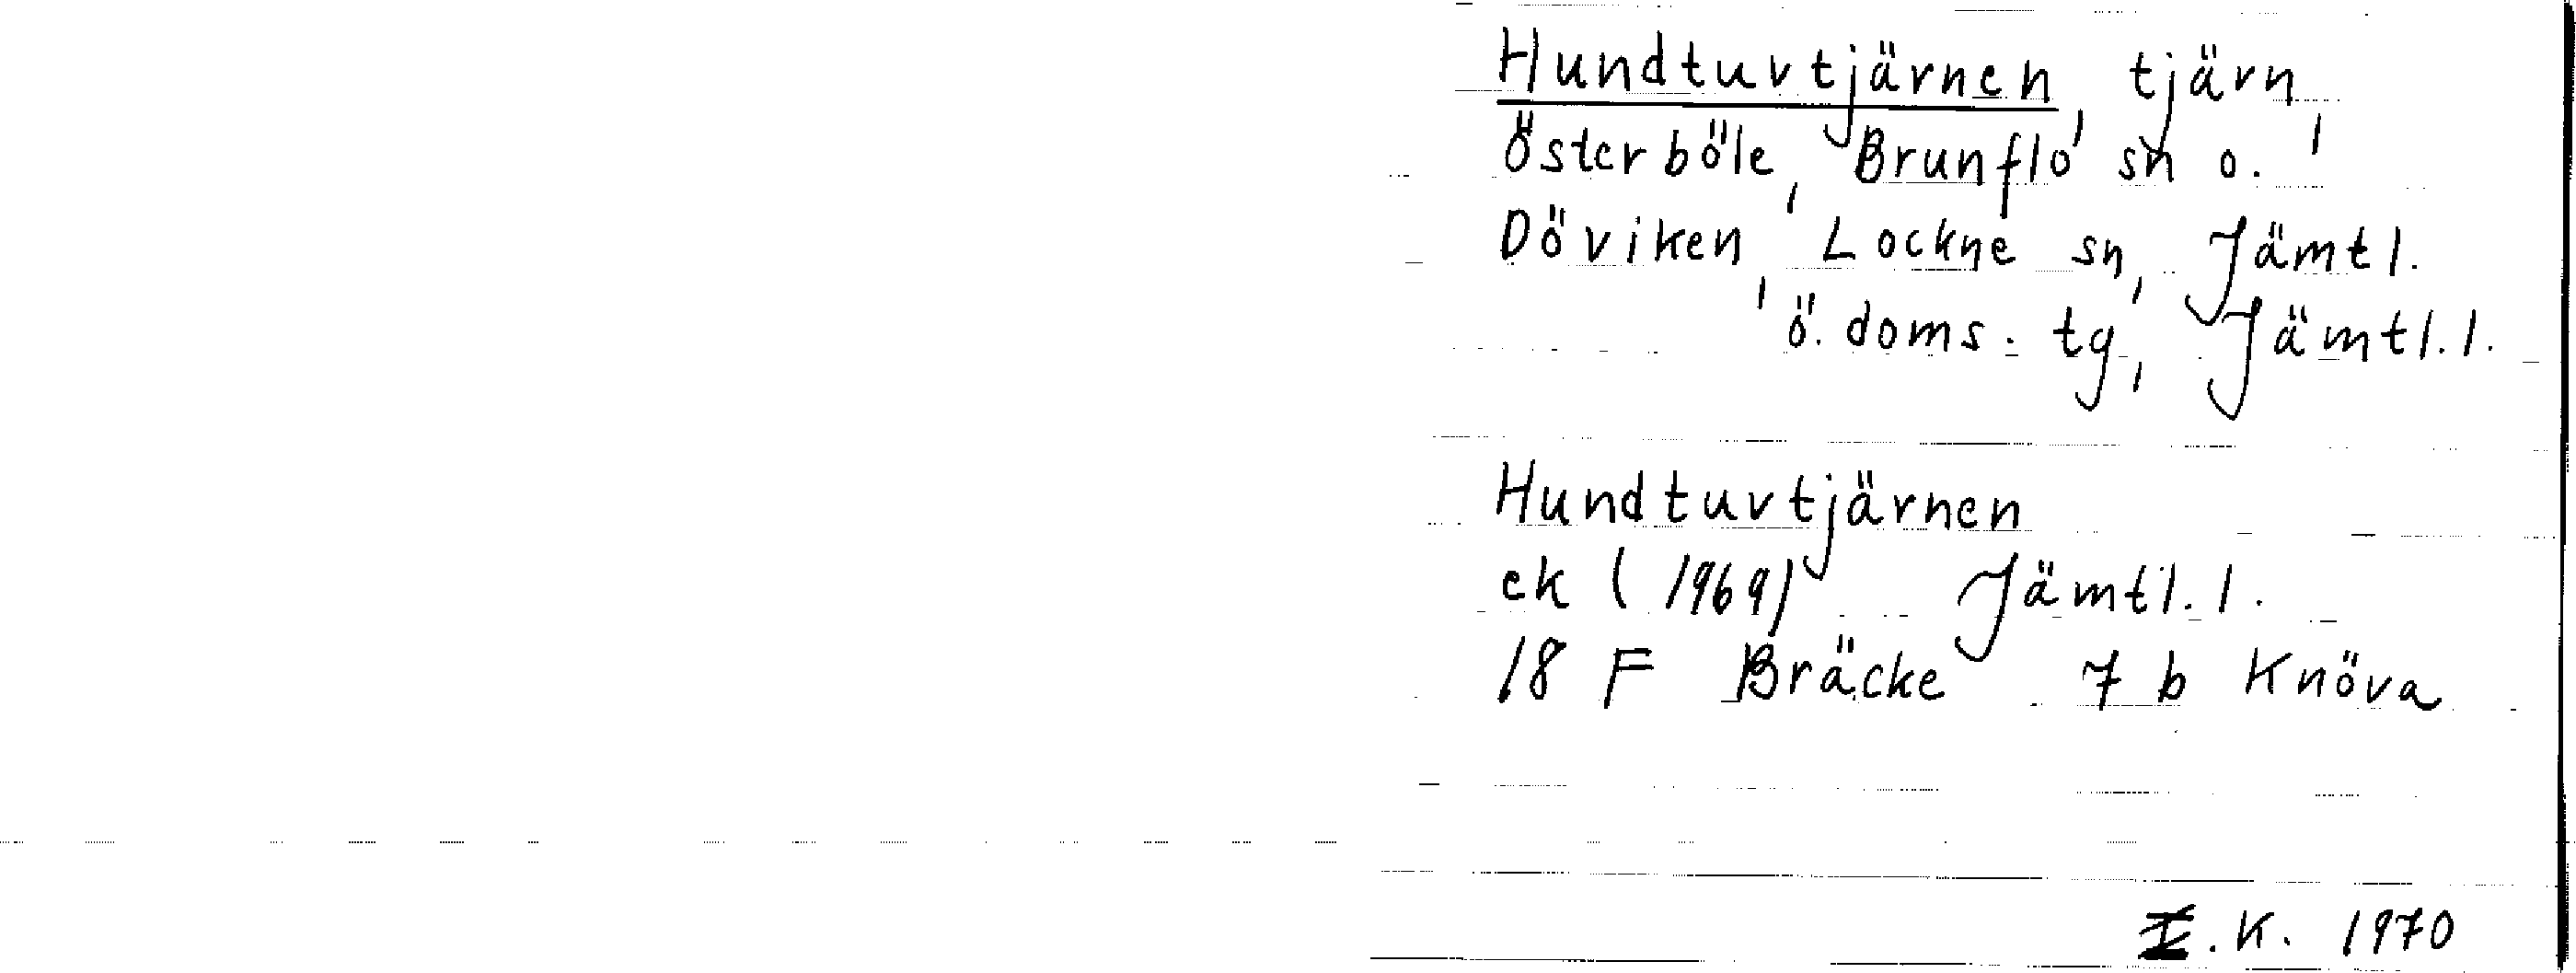 Hundtuvtjärnen, tjärn,
Österböle, Brunflo sn o.
Döviken, Lockne sn, Jämtl.
ö. doms. tg, Jämtl. l.
Hundtuvtjärnen
ek (1969) Jämtl. l.
18 F Bräcke 7 b Knöva
K. 1970